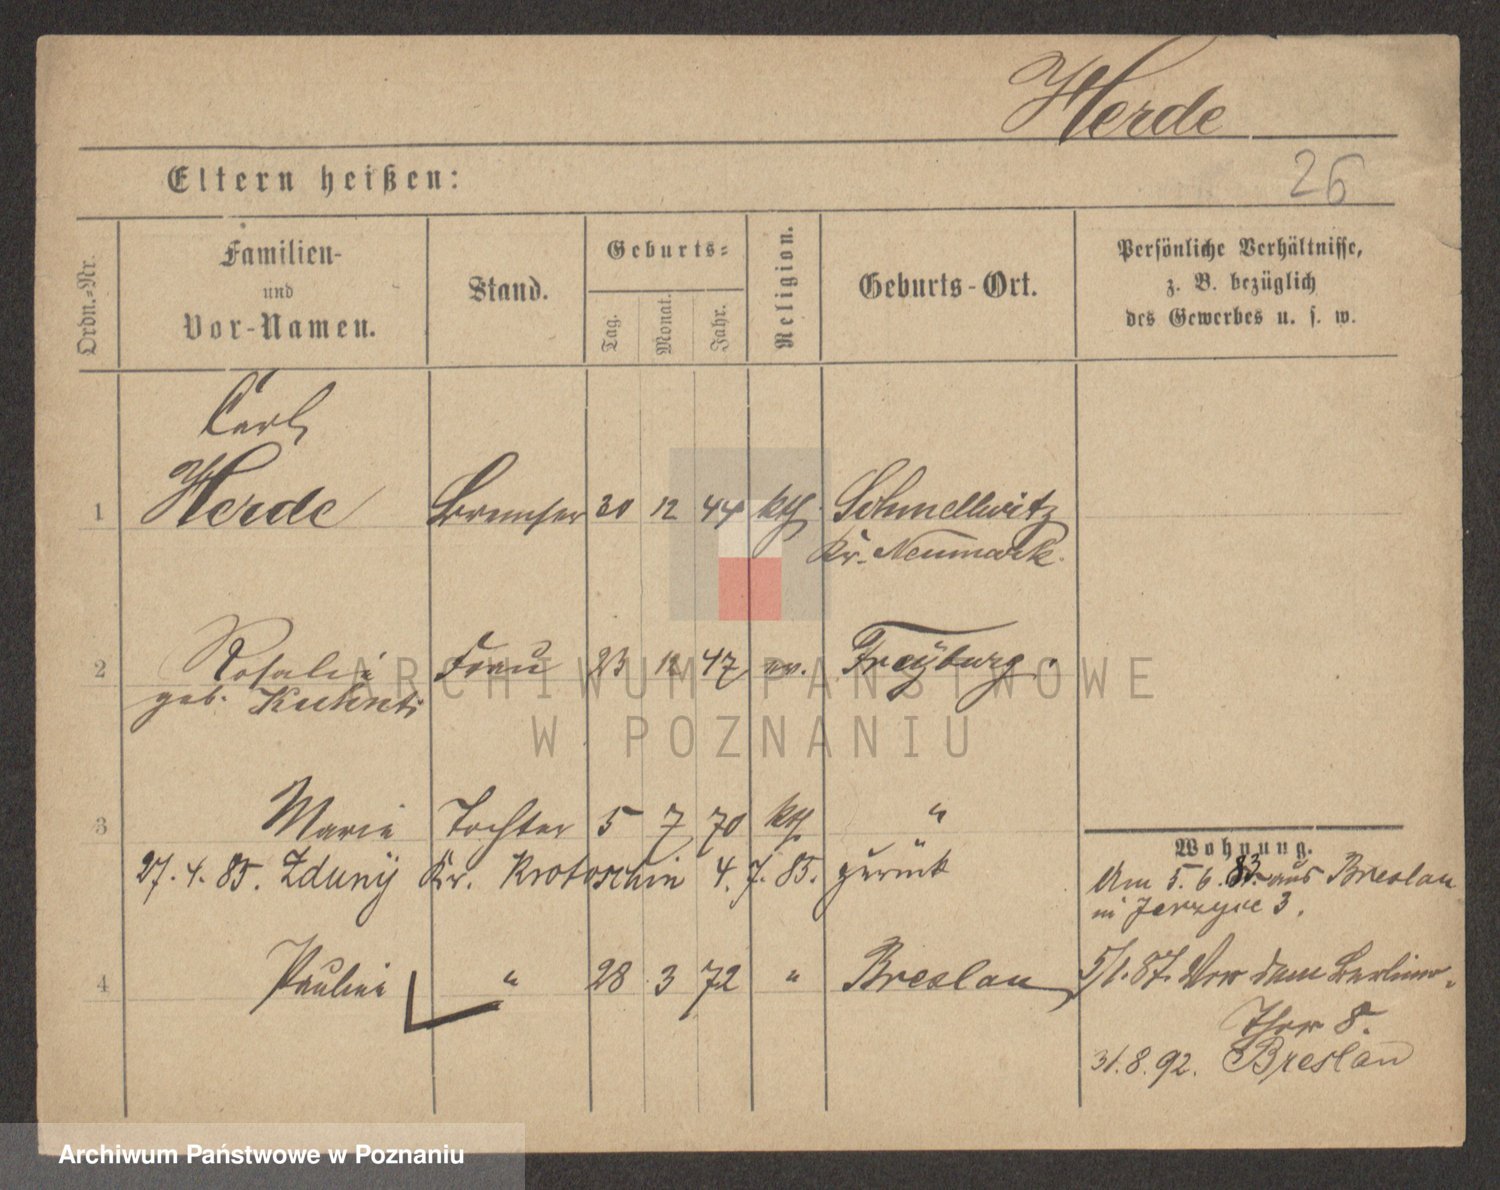 Herde
Eltern heißen:
26
Ordn.-Nr.
Familien-
und
Vor-Namen.
Stand.
Geburts-
Tag.
Monat.
Jahr.
Religion.
Geburts-Ort.
Persönliche Verhältnisse,
z. B. bezüglich
des Gewerbes u. s. w.
Carl
1 Herde Bremser 30 12 44 kth. Schmellwitz
Kr. Neumark.
2 Rosalie Frau 23 12 47 ev. Freÿburg.
geb. Kuhnt
ARCHIWUM PAŃSTWOWE
W POZNANIU
3 Marie Tochter 5 7 70 kth "
27. 4. 85. Zdunÿ Kr. Krotoschin 4. 7. 85. zurück
Wohnung.
Am 5. 6. 83 aus Breslau
in Jerzyce 3.
4 Pauline " 28 3 72 " Breslau
5/1. 87. Vor dem Berliner-
Thor 8.
31. 8. 92. Breslau
Archiwum Państwowe w Poznaniu